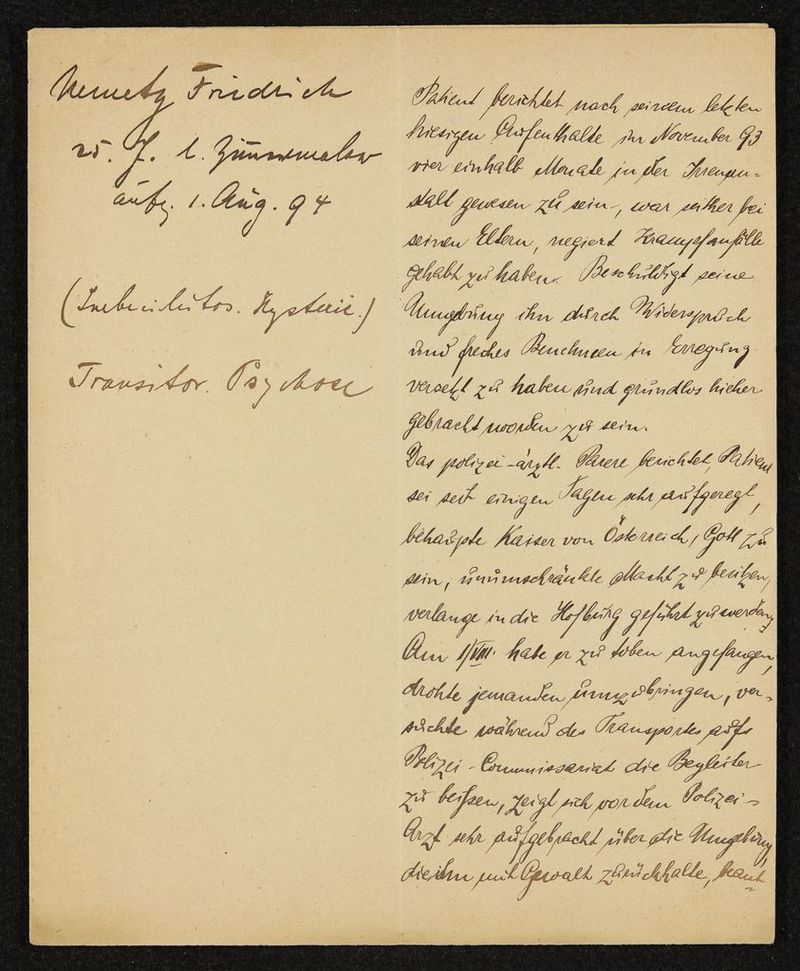 Nemetz Friedrich
25. J. l. Zimmermaler
aufg. 1. Aug. 94
(Imbecillitas. Hysterie.)
Transitor. Psychose
Patient berichtet nach seinem letzten
hiesigen Aufenthalte im November 93
vier einhalb Monate in der Irrenan-
stalt gewesen zu sein, war seither bei
seinen Eltern, negiert Krampfanfälle
gehabt zu haben. Beschuldigt seine
Umgebung ihn durch Widerspruch
und freches Benehmen in Erregung
versetzt zu haben und grundlos hieher
gebracht worden zu sein.
Das polizei-ärztl. Parere berichtet, Patient
sei seit einigen Tagen sehr aufgeregt,
behaupte Kaiser von Österreich, Gott zu
sein, unumschränkte Macht zu besitzen,
verlange in die Hofburg geführt zu werden,
Am 1/VIII. habe er zu toben angefangen,
drohte jemanden umzubringen, ver-
suchte während des Transportes aufs
Polizei-Commissariat die Begleiter
zu beißen, zeigt sich vor dem Polizei-
Arzt sehr aufgebracht über die Umgebung,
die ihn mit Gewalt zurückhalte, beant-